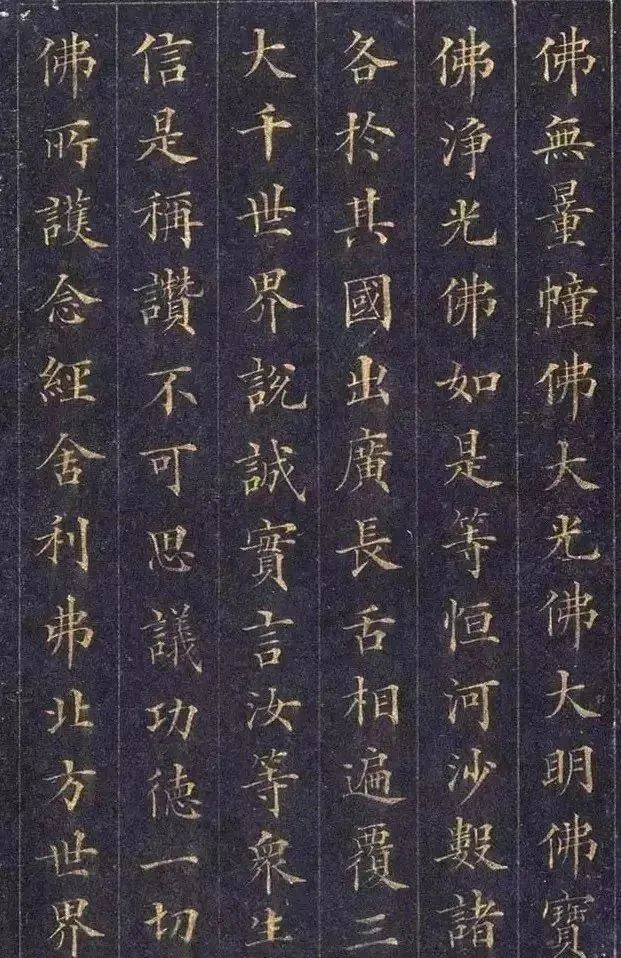 佛無量幢佛大光佛大明佛寶
佛淨光佛如是等恒河沙數諸
各於其國出廣長舌相遍覆三
大千世界說誠實言汝等衆生
信是稱讚不可思議功徳一切
佛所護念經舍利弗北方世界